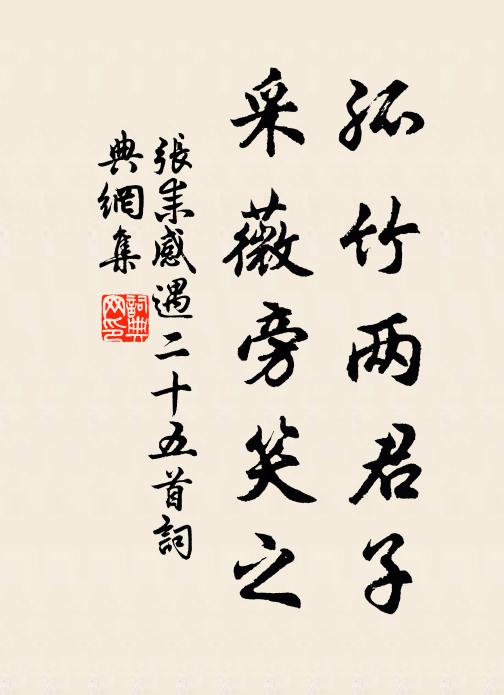 孤竹两君子
采薇旁笑之
張耒感遇二十五首詞
典網集
詞典
网印